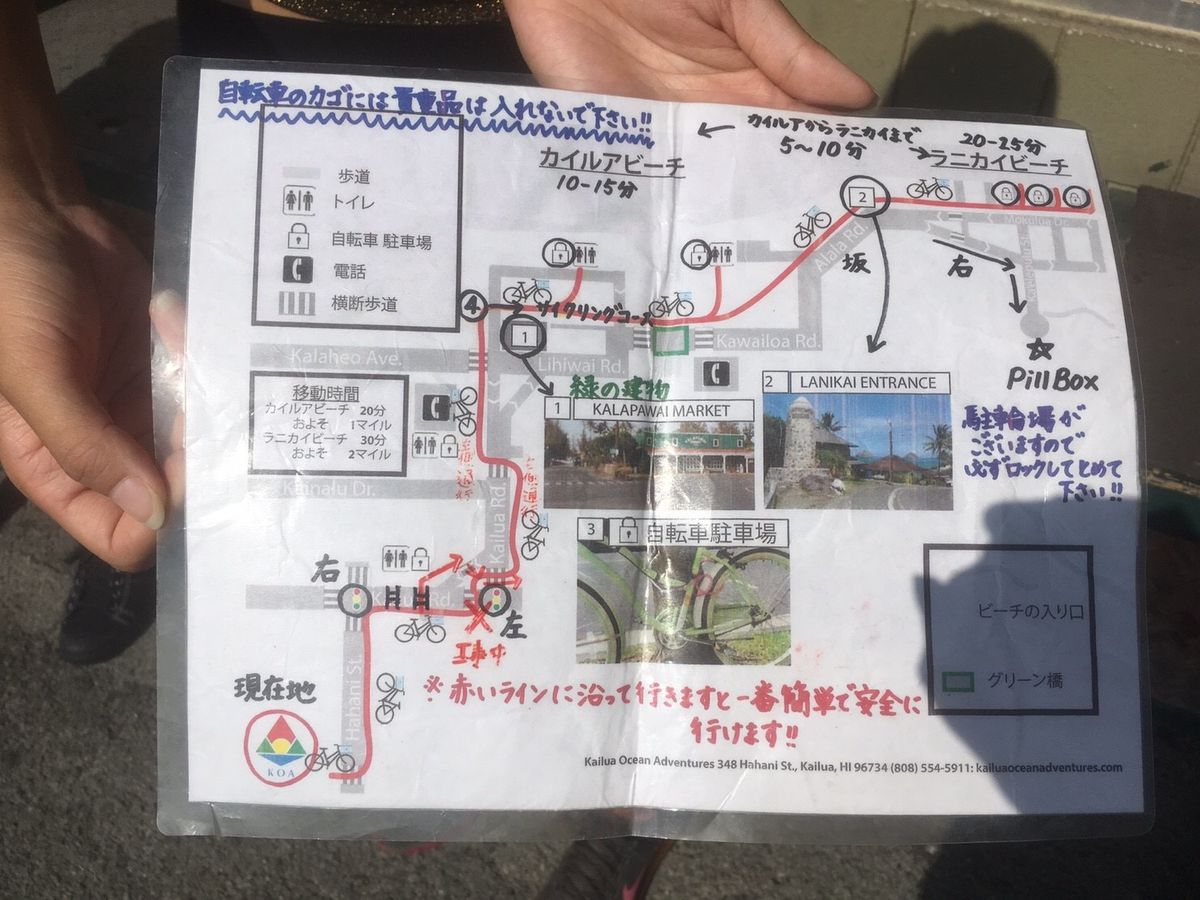 自転車のカゴには貴重品は入れないで下さい!!
カイルアからラニカイまで
5〜10分
20-25分
ラニカイビーチ
カイルアビーチ
10-15分
歩道
トイレ
自転車 駐車場
電話
横断歩道
2
Mokulua Dr.
Alala Rd.
坂
右
Pill Box
4
サイクリングコース
1
Kalaheo Ave.
Lihiwai Rd.
Kawailoa Rd.
緑の建物
移動時間
カイルアビーチ 20分
およそ 1マイル
ラニカイビーチ 30分
およそ 2マイル
1 KALAPAWAI MARKET
2 LANIKAI ENTRANCE
駐車輪場が
ございますので
必ずロックしてとめて
下さい!!
Kainalu Dr.
Kailua Rd.
3 自転車駐車場
右
左
工事中
Hahani St.
現在地
KOA
ビーチの入り口
グリーン橋
※赤いラインに沿って行きますと一番簡単で安全に
行けます!!
Kailua Ocean Adventures 348 Hahani St., Kailua, HI 96734 (808) 554-5911: kailuaoceanadventures.com